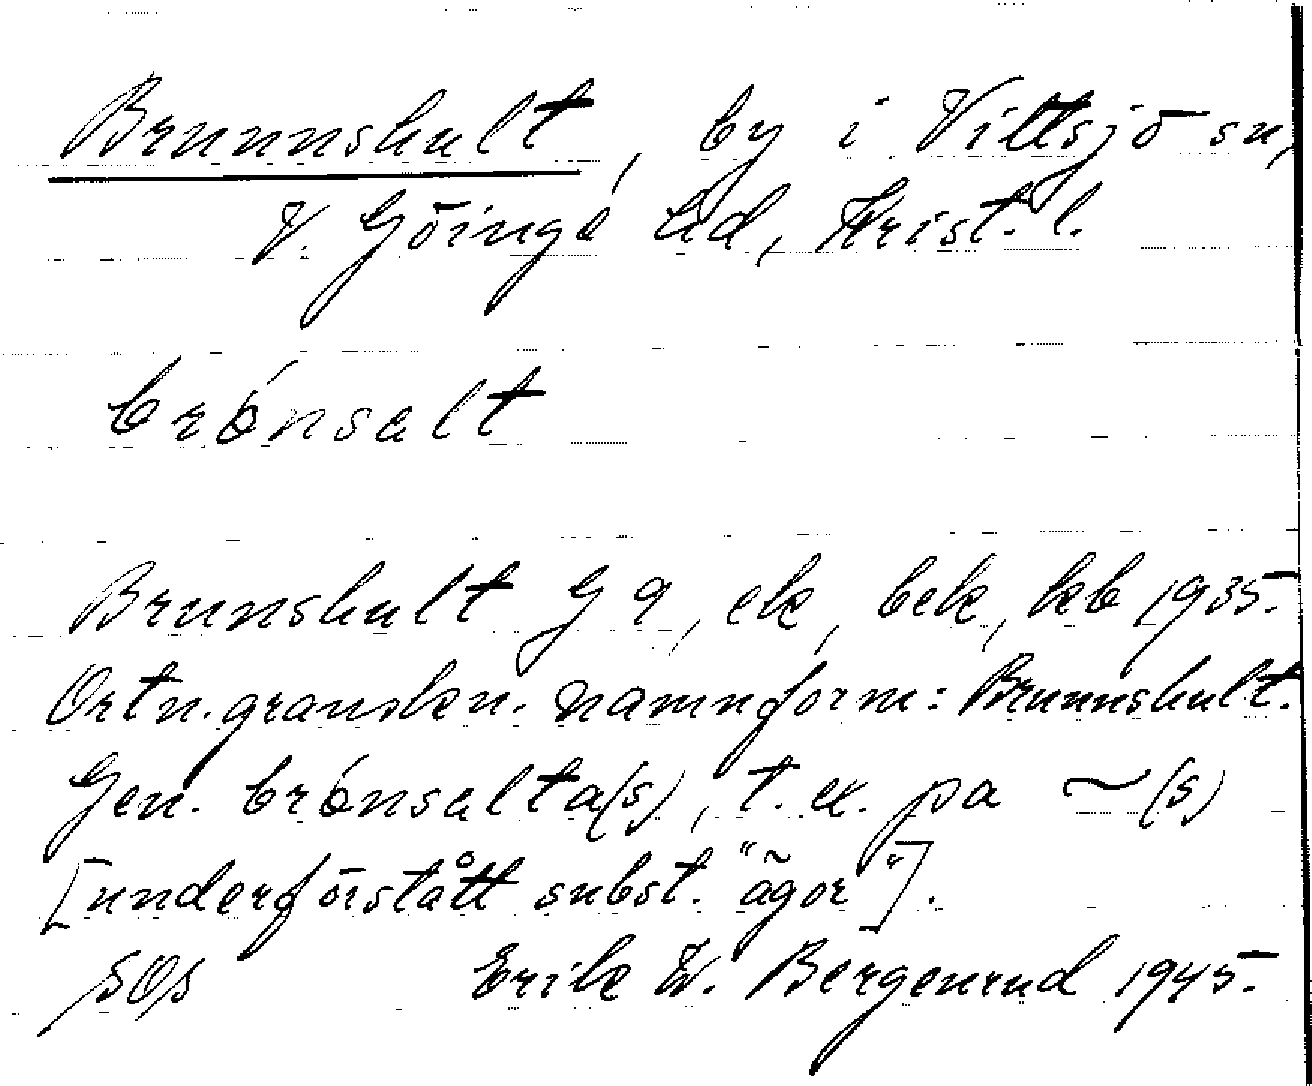 Brunnshult, by i Vittsjö sn,
V. Göinge hd, Krist. l.
brónsalt
Brunshult G 9, ek, bek, kb 1935.
Ortn.granskn. namnform: Brunnshult.
Gen. brónsalta(s), t. ex. pa ~(s)
[underförstått subst. "ägor"].
SOS Erik W. Bergenrud 1945.